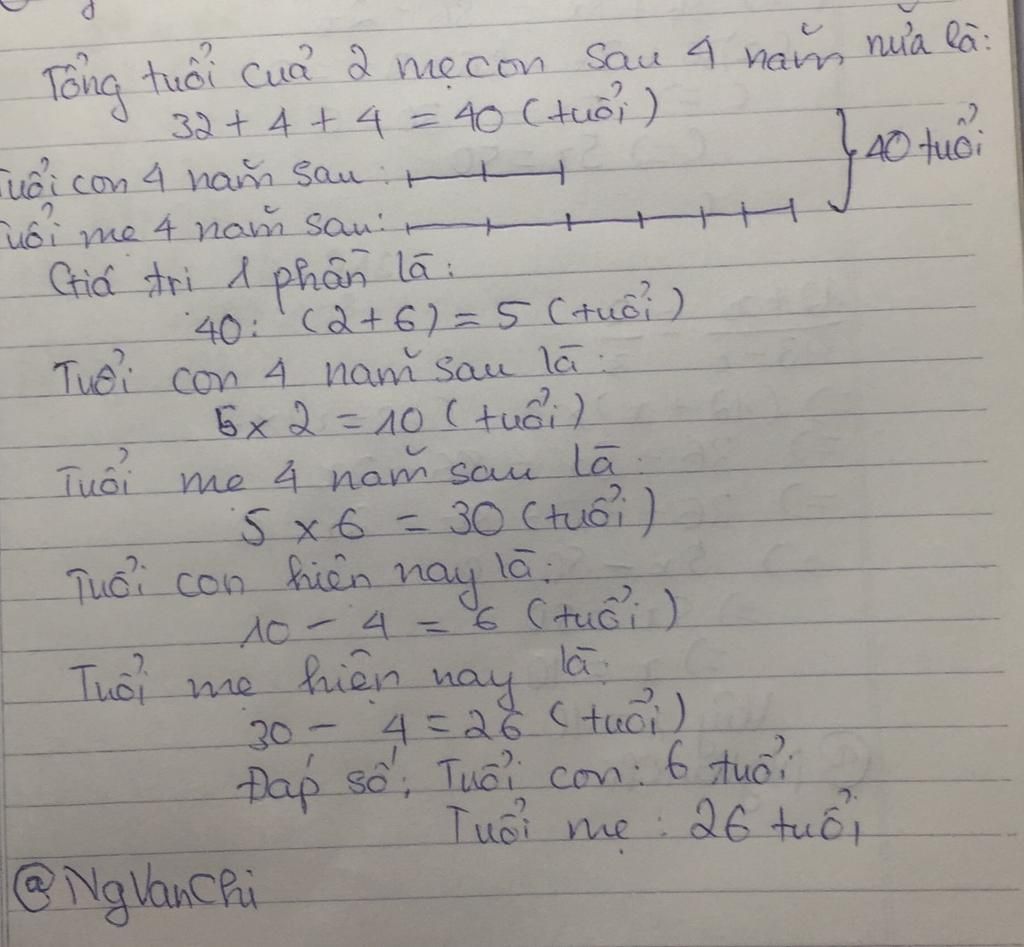 Tổng tuổi cuả 2 mẹ con sau 4 năm nưã là:
32 + 4 + 4 = 40 (tuổi)
Tuổi con 4 năm sau:
40 tuổi
Tuổi mẹ 4 năm sau:
Giá trị 1 phần là:
40: (2+6) = 5 (tuổi)
Tuổi con 4 năm sau là:
5 x 2 = 10 (tuổi)
Tuổi mẹ 4 năm sau là:
5 x 6 = 30 (tuổi)
Tuổi con hiện nay là:
10 - 4 = 6 (tuổi)
Tuổi mẹ hiện nay là:
30 - 4 = 26 (tuổi)
Đáp số: Tuổi con: 6 tuổi
Tuổi mẹ: 26 tuổi
@NgVanChi